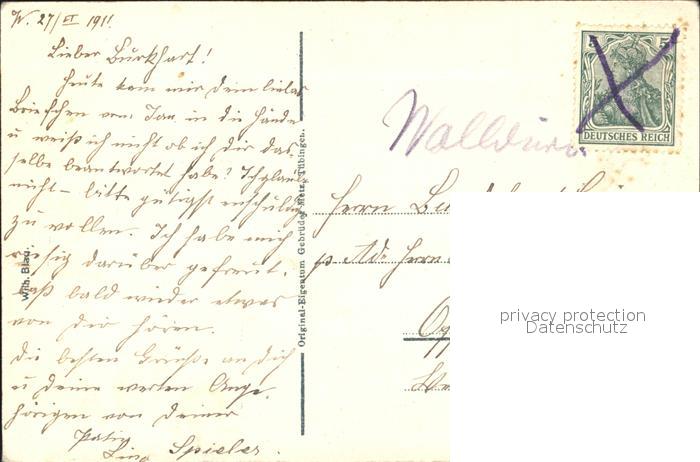 W. 27/VI 1911.
Lieber Burkhart!
Heute kam mir dein liebes
Briefchen von Jan. in die Hände
u weiß ich nicht ob ich dir das-
selbe beantwortet habe? Ich glaube
nicht – bitte gütigst entschuldigen
zu wollen. Ich habe mich
riesig darüber gefreut.
Laß bald wieder etwas
von dir hören.
Die besten Grüße an dich
u deine werten Ange-
hörigen von deiner
Patin
Lina Spieler.
Wilh. Blau.
Original-Eigentum Gebrüder Metz, Tübingen.
DEUTSCHES REICH
5 5
Walldürn
Herrn
p. Adr. Herrn
privacy protection
Datenschutz